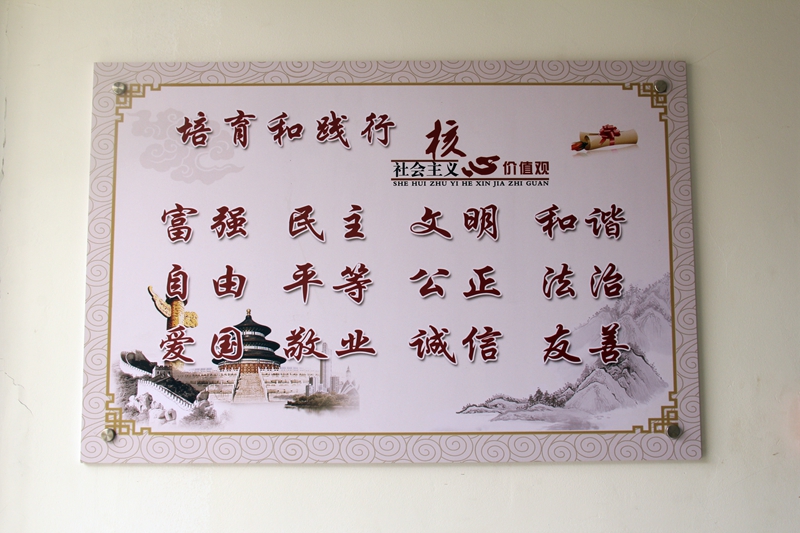 培育和践行
社会主义核心价值观
SHE HUI ZHU YI HE XIN JIA ZHI GUAN
富强 民主 文明 和谐
自由 平等 公正 法治
爱国 敬业 诚信 友善